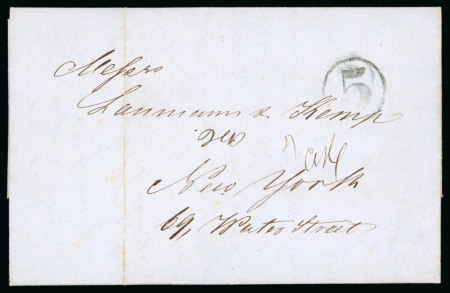 Messrs
5
Lanmann & Kemp
New York
69, Water Street